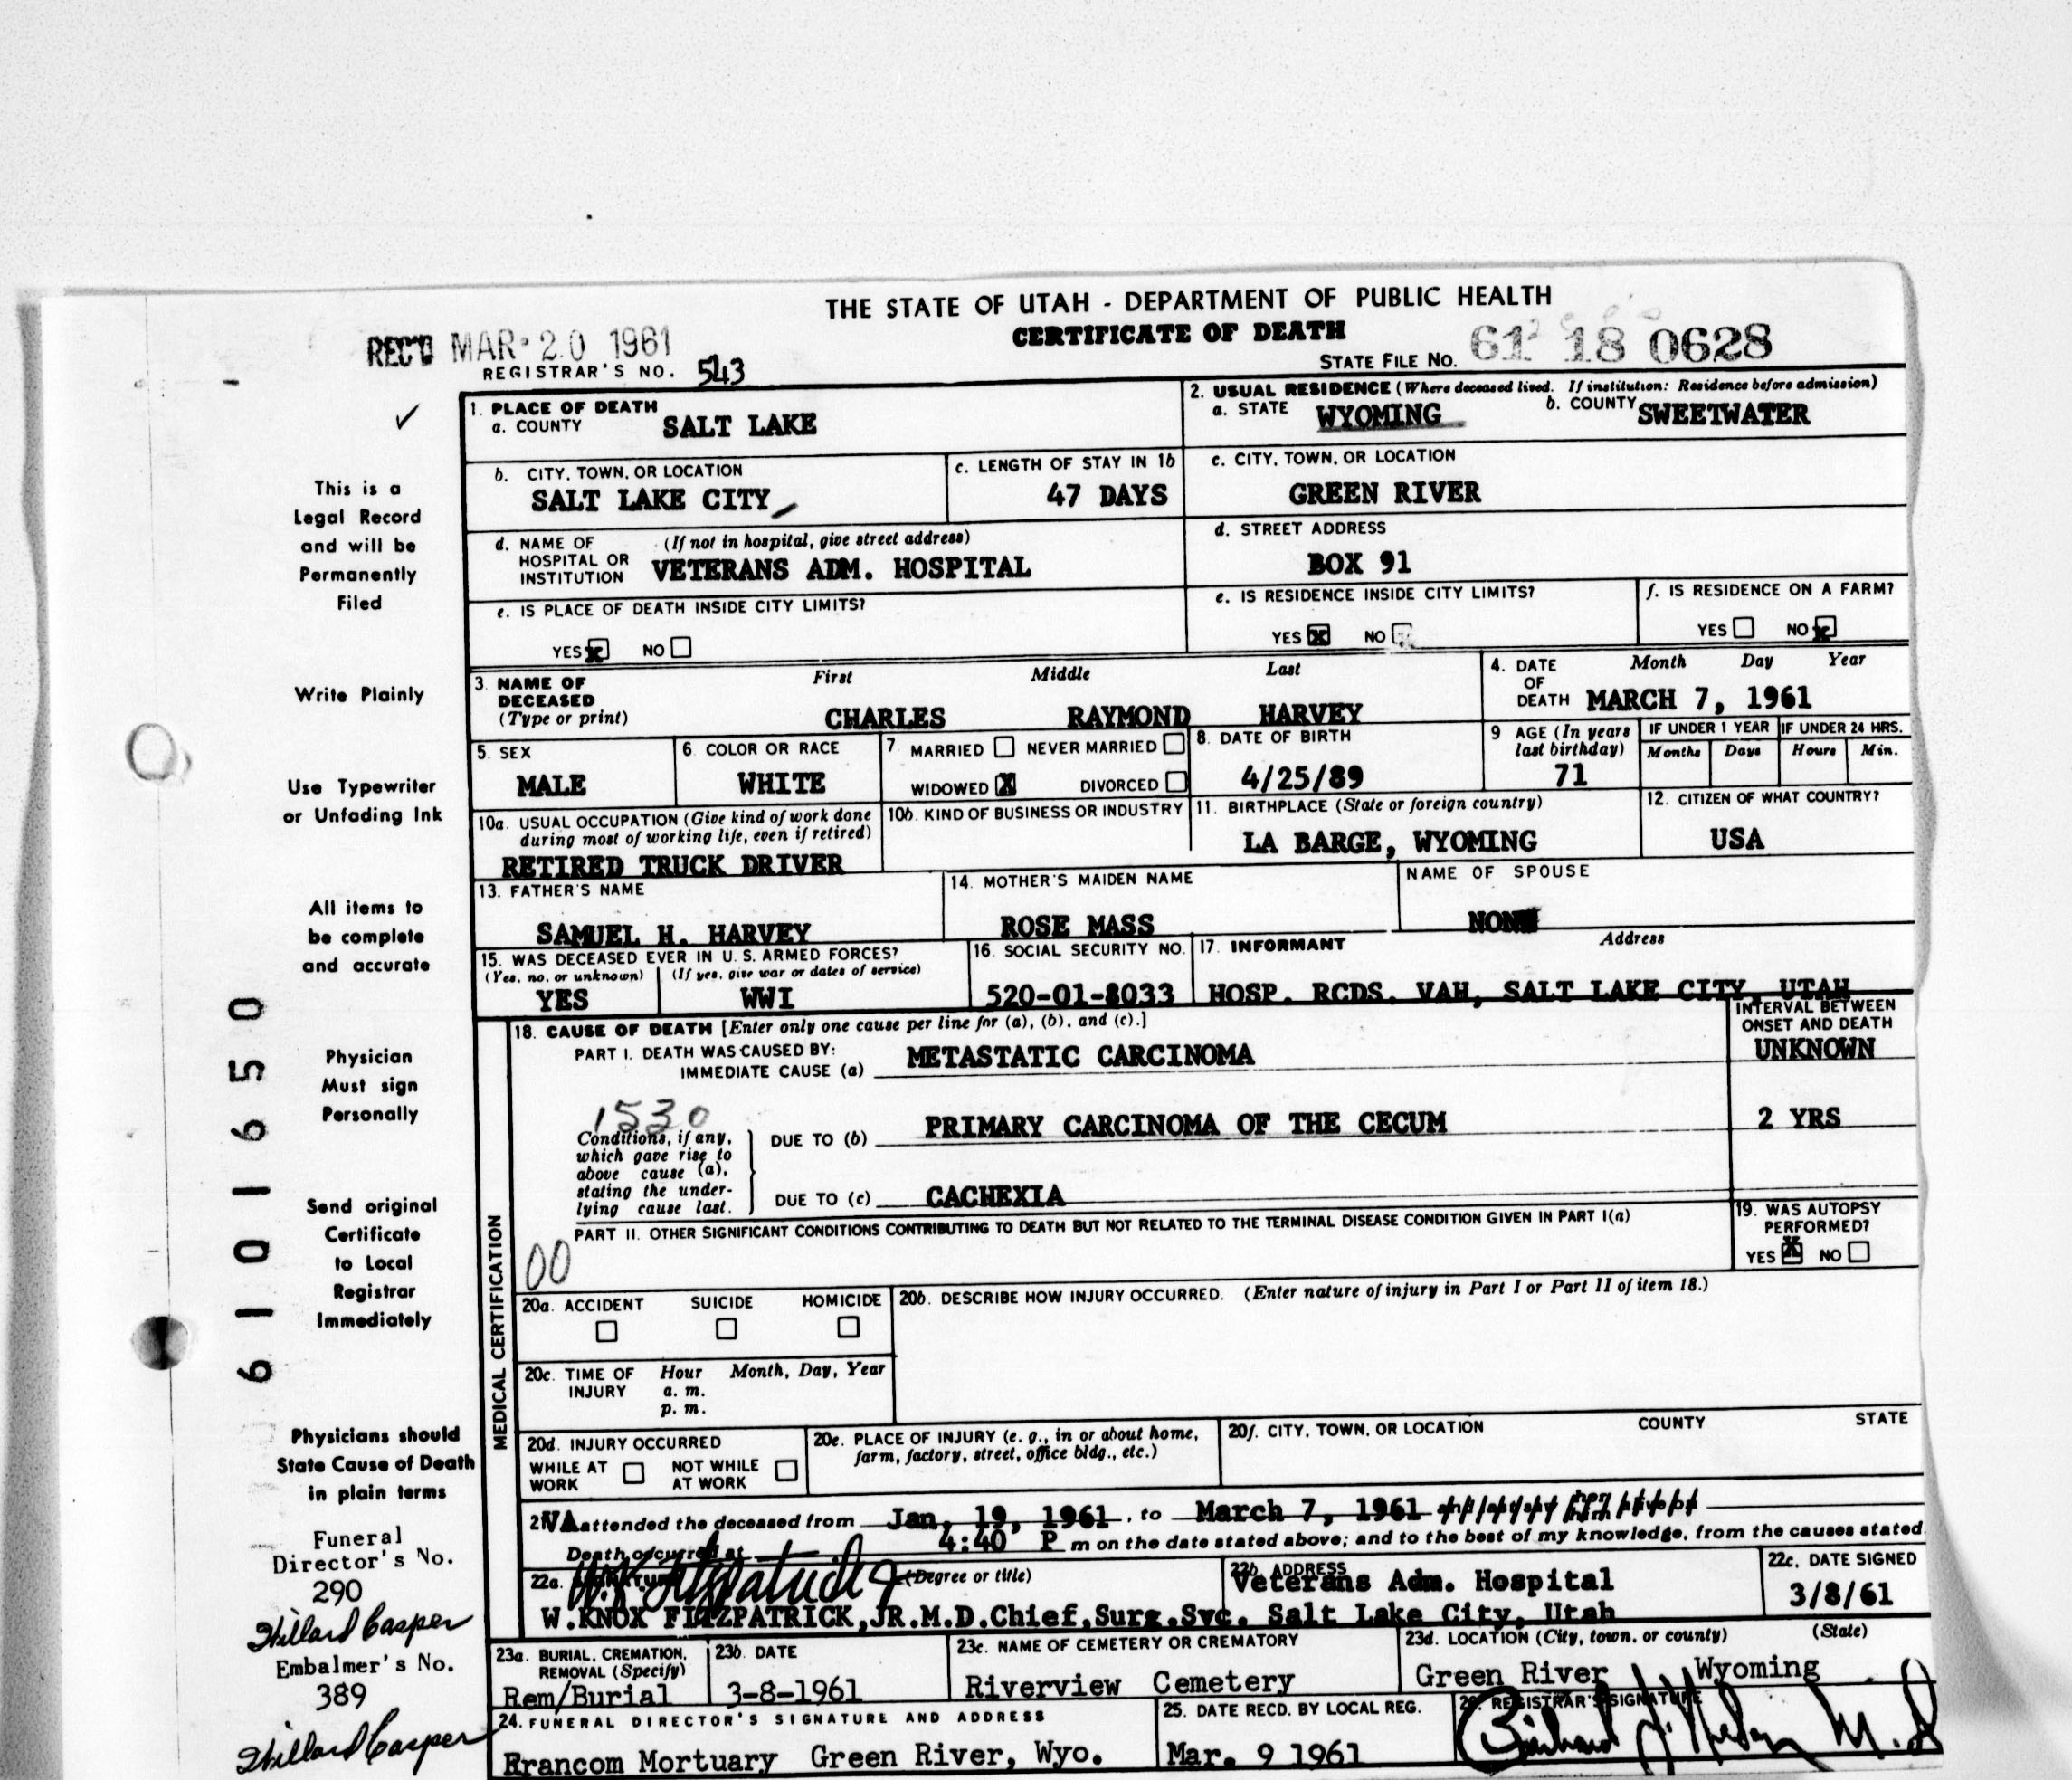 THE STATE OF UTAH - DEPARTMENT OF PUBLIC HEALTH
CERTIFICATE OF DEATH
REC'D MAR 20 1961
STATE FILE NO. 61 18 0628
REGISTRAR'S NO. 543
1. PLACE OF DEATH
a. COUNTY SALT LAKE
2. USUAL RESIDENCE (Where deceased lived. If institution: Residence before admission)
a. STATE WYOMING b. COUNTY SWEETWATER
b. CITY, TOWN, OR LOCATION
SALT LAKE CITY
c. LENGTH OF STAY IN 1b
47 DAYS
c. CITY, TOWN, OR LOCATION
GREEN RIVER
d. NAME OF (If not in hospital, give street address)
HOSPITAL OR
INSTITUTION VETERANS ADM. HOSPITAL
d. STREET ADDRESS
BOX 91
e. IS PLACE OF DEATH INSIDE CITY LIMITS?
YES X NO
e. IS RESIDENCE INSIDE CITY LIMITS?
YES X NO
f. IS RESIDENCE ON A FARM?
YES NO X
3. NAME OF DECEASED (Type or print)
First Middle Last
CHARLES RAYMOND HARVEY
4. DATE OF DEATH
Month Day Year
MARCH 7, 1961
5. SEX
MALE
6. COLOR OR RACE
WHITE
7. MARRIED NEVER MARRIED
WIDOWED X DIVORCED
8. DATE OF BIRTH
4/25/89
9 AGE (In years last birthday)
71
IF UNDER 1 YEAR IF UNDER 24 HRS.
Months Days Hours Min.
10a. USUAL OCCUPATION (Give kind of work done
during most of working life, even if retired)
RETIRED TRUCK DRIVER
10b. KIND OF BUSINESS OR INDUSTRY
11. BIRTHPLACE (State or foreign country)
LA BARGE, WYOMING
12. CITIZEN OF WHAT COUNTRY?
USA
13. FATHER'S NAME
SAMUEL H. HARVEY
14. MOTHER'S MAIDEN NAME
ROSE MASS
NAME OF SPOUSE
15. WAS DECEASED EVER IN U. S. ARMED FORCES?
(Yes, no, or unknown) (If yes, give war or dates of service)
YES WWI
16. SOCIAL SECURITY NO.
520-01-8033
17. INFORMANT Address
HOSP. RCDS. VAH, SALT LAKE CITY, UTAH
18. CAUSE OF DEATH [Enter only one cause per line for (a), (b), and (c).]
INTERVAL BETWEEN
ONSET AND DEATH
PART I. DEATH WAS CAUSED BY:
IMMEDIATE CAUSE (a) METASTATIC CARCINOMA UNKNOWN
1530
Conditions, if any,
which gave rise to
above cause (a),
stating the under-
lying cause last.
DUE TO (b) PRIMARY CARCINOMA OF THE CECUM 2 YRS
DUE TO (c) CACHEXIA
PART II. OTHER SIGNIFICANT CONDITIONS CONTRIBUTING TO DEATH BUT NOT RELATED TO THE TERMINAL DISEASE CONDITION GIVEN IN PART I(a)
00
19. WAS AUTOPSY
PERFORMED?
YES X NO
MEDICAL CERTIFICATION
20a. ACCIDENT SUICIDE HOMICIDE
20b. DESCRIBE HOW INJURY OCCURRED. (Enter nature of injury in Part I or Part II of item 18.)
20c. TIME OF INJURY
Hour Month, Day, Year
a. m.
p. m.
20d. INJURY OCCURRED
WHILE AT WORK NOT WHILE AT WORK
20e. PLACE OF INJURY (e. g., in or about home,
farm, factory, street, office bldg., etc.)
20f. CITY, TOWN, OR LOCATION COUNTY STATE
VA attended the deceased from Jan. 19, 1961, to March 7, 1961
Death occurred at 4:40 P m on the date stated above; and to the best of my knowledge, from the causes stated.
22a. (Degree or title)
W.KNOX FITZPATRICK,JR.M.D.Chief,Surg.Svc.
22b. ADDRESS
Veterans Adm. Hospital
Salt Lake City, Utah
22c. DATE SIGNED
3/8/61
23a. BURIAL, CREMATION,
REMOVAL (Specify)
Rem/Burial
23b. DATE
3-8-1961
23c. NAME OF CEMETERY OR CREMATORY
Riverview Cemetery
23d. LOCATION (City, town, or county) (State)
Green River Wyoming
24. FUNERAL DIRECTOR'S SIGNATURE AND ADDRESS
Mortuary Green River, Wyo.
25. DATE RECD. BY LOCAL REG.
Mar. 9 1961
26. REGISTRAR'S SIGNATURE
This is a
Legal Record
and will be
Permanently
Filed
Write Plainly
Use Typewriter
or Unfading Ink
All items to
be complete
and accurate
Physician
Must sign
Personally
Send original
Certificate
to Local
Registrar
Immediately
Physicians should
State Cause of Death
in plain terms
Funeral
Director's No.
290
Hillard Casper
Embalmer's No.
389
Hillard Casper
6101650